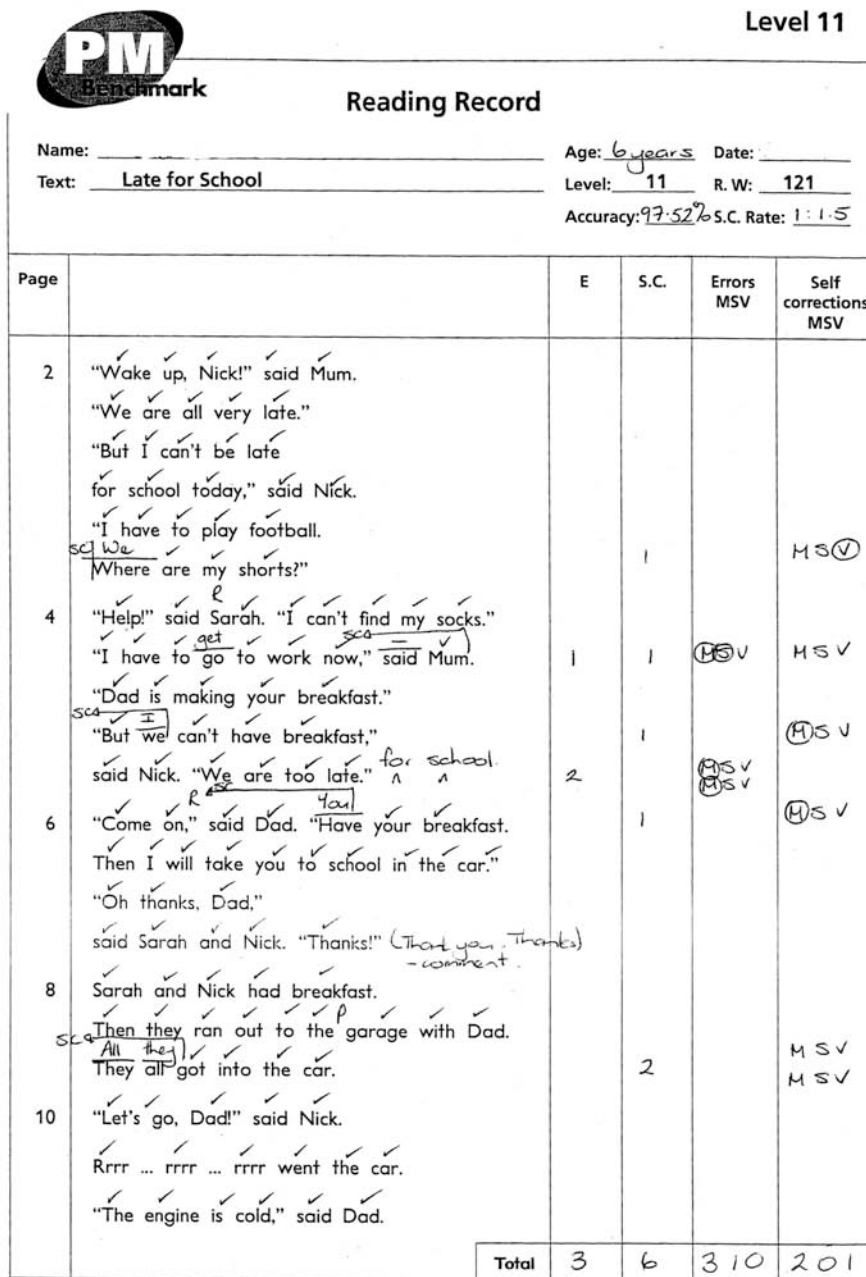 Level 11
PM
Benchmark
Reading Record
Name:
Age: 6 years Date:
Text: Late for School
Level: 11 R. W: 121
Accuracy: 97.52% S.C. Rate: 1:1.5
Page E S.C. Errors MSV Self corrections MSV
2 "Wake up, Nick!" said Mum.
"We are all very late."
"But I can't be late
for school today," said Nick.
"I have to play football.
SC We
Where are my shorts?" 1 M S V
R
4 "Help!" said Sarah. "I can't find my socks."
get SC
"I have to go to work now," said Mum. 1 1 M S V M S V
"Dad is making your breakfast."
SC I
"But we can't have breakfast," 1 M S V
said Nick. "We are too late." for school. 2 M S V
M S V
R SC You
6 "Come on," said Dad. "Have your breakfast. 1 M S V
Then I will take you to school in the car."
"Oh thanks, Dad,"
said Sarah and Nick. "Thanks!" (Thank you. Thanks)
- comment.
8 Sarah and Nick had breakfast.
Then they ran out to the garage with Dad.
SC All they
They all got into the car. 2 M S V
M S V
10 "Let's go, Dad!" said Nick.
Rrrr ... rrrr ... rrrr went the car.
"The engine is cold," said Dad.
Total 3 6 3 1 0 2 0 1